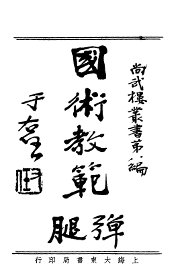 尚武樓叢書第一編
國術教範
彈腿
于右任
上海大東書局印行